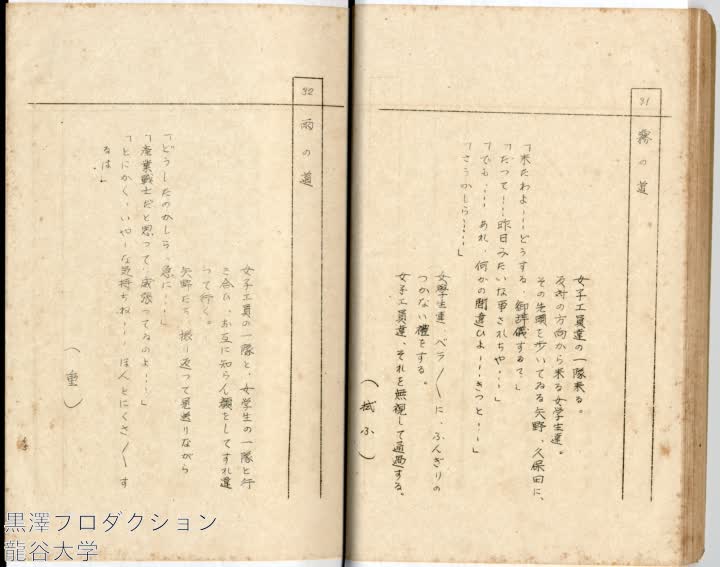 31
霧の道
女子工員達の一隊来る。
反対の方向から来る女学生達。
その先頭を歩いてゐる矢野、久保田に、
「来たわよ……どうする、御辞儀するて」
「だつて……昨日みたいな事されちや……」
「でも、……あれ、何かの間違ひよ……きつと……」
「さうかしら……」
女學生達、ベラ〳〵に、ふんぎりの
つかない禮をする。
女子工員達、それを無視して通過する。
(拭ふ)
32
雨の道
女子工員の一隊と、女学生の一隊と行
き合ひ、お互に知らん顔をしてすれ違
つて行く。
矢野たち、振り返つて見送りながら
「どうしたのかしら、急に……」
「産業戦士だと思つて、威張つてゐのよ……」
「とにかく、いやーな気持ちね……ほんとにくさ〳〵す
るは」
(重)
黒澤プロダクション
龍谷大学